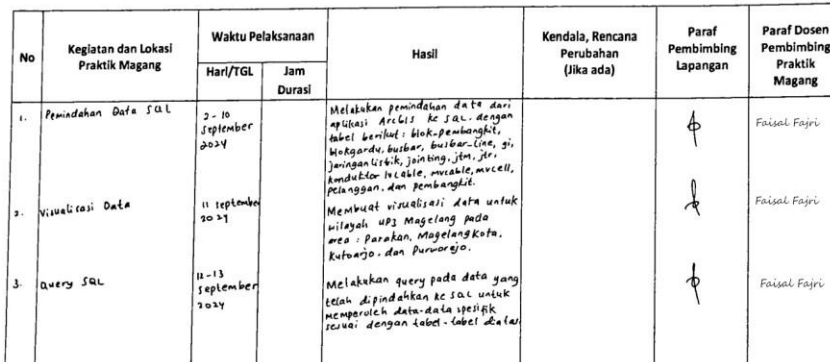 No
Kegiatan dan Lokasi
Praktik Magang
Waktu Pelaksanaan
Hari/TGL
Jam
Durasi
Hasil
Kendala, Rencana
Perubahan
(Jika ada)
Paraf
Pembimbing
Lapangan
Paraf Dosen
Pembimbing
Praktik
Magang
1.
Pemindahan Data SQL
2 - 10
September
2024
Melakukan pemindahan data dari
aplikasi ArcGIS ke SQL. dengan
tabel berikut : blok-pembangkit,
blokgardu, busbar, busbar-line, gi,
jaringan listrik, jointing, jtm, jtr,
konduktor lvcable, mvcable, mvcell,
pelanggan, dan pembangkit.
Faisal Fajri
2.
Visualisasi Data
11 September
2024
Membuat visualisasi data untuk
wilayah UP3 Magelang pada
area : Parakan, Magelang Kota,
Kutoarjo, dan Purworejo.
Faisal Fajri
3.
Query SQL
12-13
September
2024
Melakukan query pada data yang
telah dipindahkan ke SQL untuk
memperoleh data-data spesifik
sesuai dengan tabel-tabel diatas.
Faisal Fajri